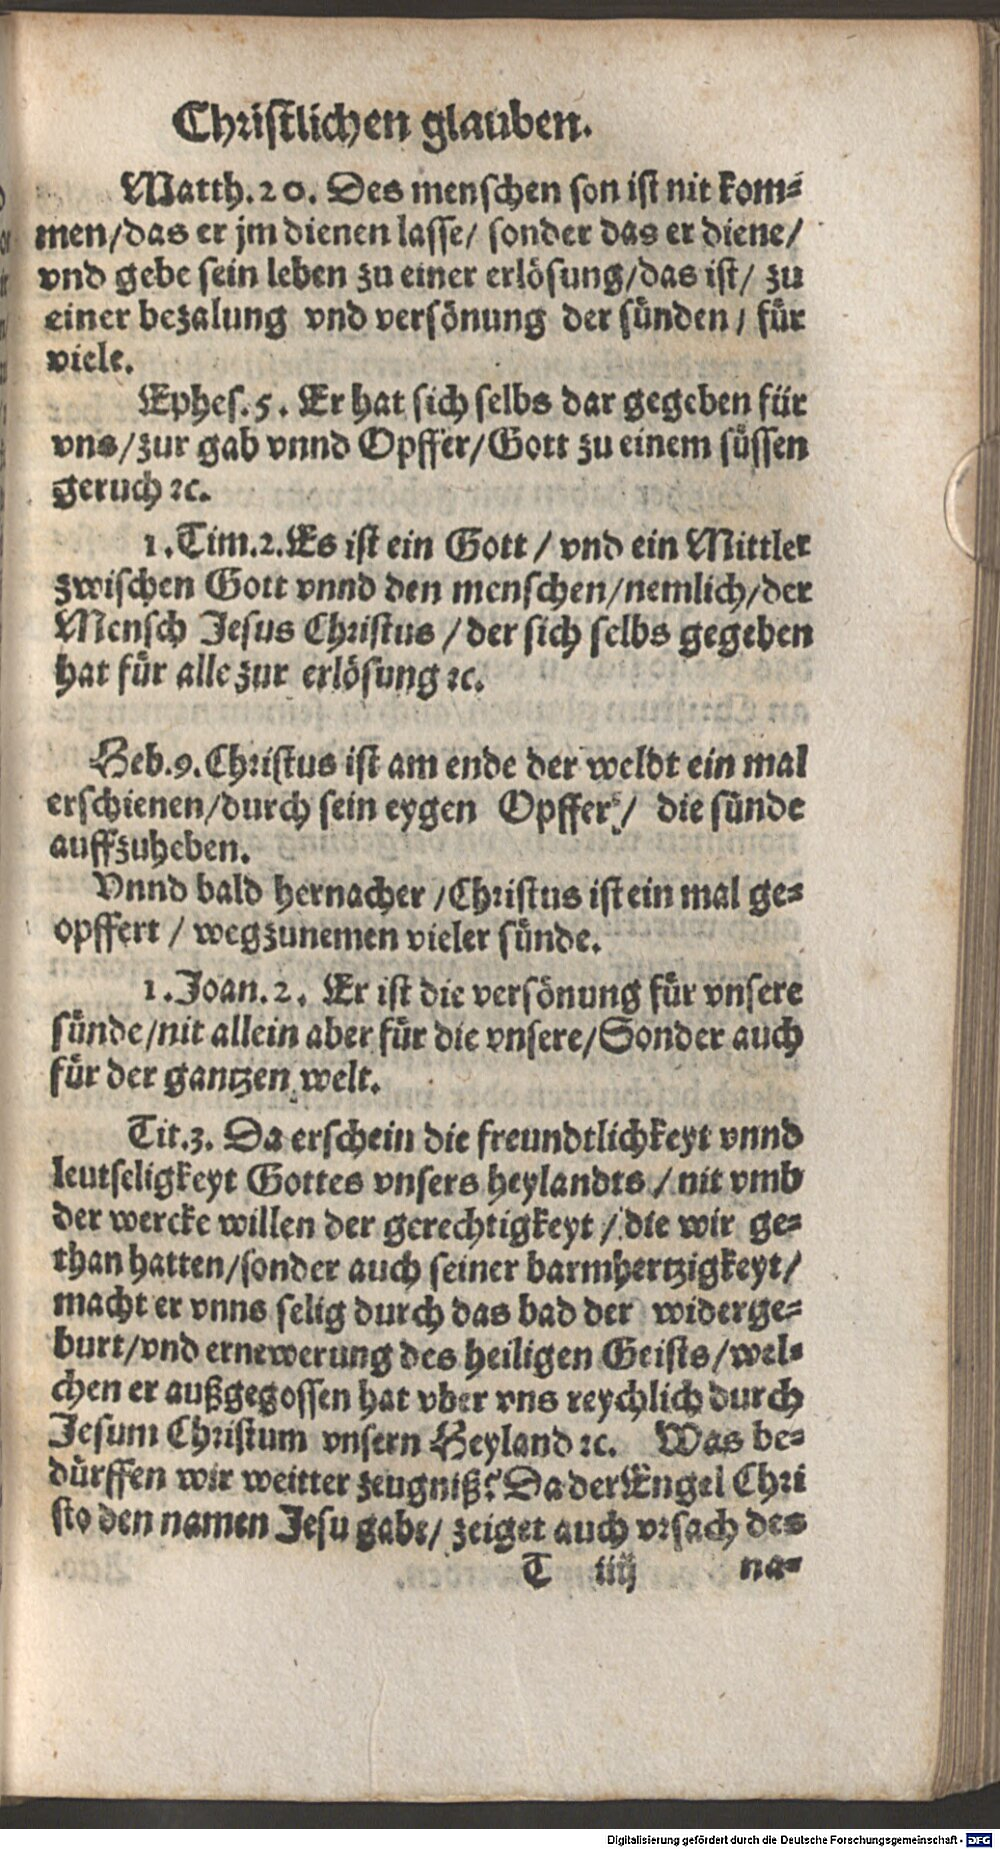 Christlichen glauben.
Matth. 20. Des menschen son ist nit kom⸗
men/das er jm dienen lasse/ sonder das er diene/
vnd gebe sein leben zu einer erlösung/das ist/ zu
einer bezalung vnd versönung der sünden/ für
viele.
Ephes. 5. Er hat sich selbs dar gegeben für
vns/zur gab vnnd Opffer/Gott zu einem süssen
geruch ꝛc.
1. Tim. 2. Es ist ein Gott/ vnd ein Mittler
zwischen Gott vnnd den menschen/nemlich/der
Mensch Jesus Christus/der sich selbs gegeben
hat für alle zur erlösung ꝛc.
Heb. 9. Christus ist am ende der weldt ein mal
erschienen/durch sein eygen Opffer/ die sünde
auffzuheben.
Vnnd bald hernacher/Christus ist ein mal ge⸗
opffert/ wegzunemen vieler sünde.
1. Joan. 2. Er ist die versönung für vnsere
sünde/nit allein aber für die vnsere/Sonder auch
für der gantzen welt.
Tit. 3. Da erschein die freundtlichkeyt vnnd
leutseligkeyt Gottes vnsers heylandts/ nit vmb
der wercke willen der gerechtigkeyt/ die wir ge⸗
than hatten/sonder auch seiner barmhertzigkeyt/
macht er vnns selig durch das bad der widerge⸗
burt/vnd ernewerung des heiligen Geists/wel⸗
chen er außgegossen hat vber vns reychlich durch
Jesum Christum vnsern Heyland ꝛc. Was be⸗
dürffen wir weitter zeugniß? Da der Engel Chri
sto den namen Jesu gabe/ zeiget auch vrsach des
T iiij na⸗
Digitalisierung gefördert durch die Deutsche Forschungsgemeinschaft - DFG